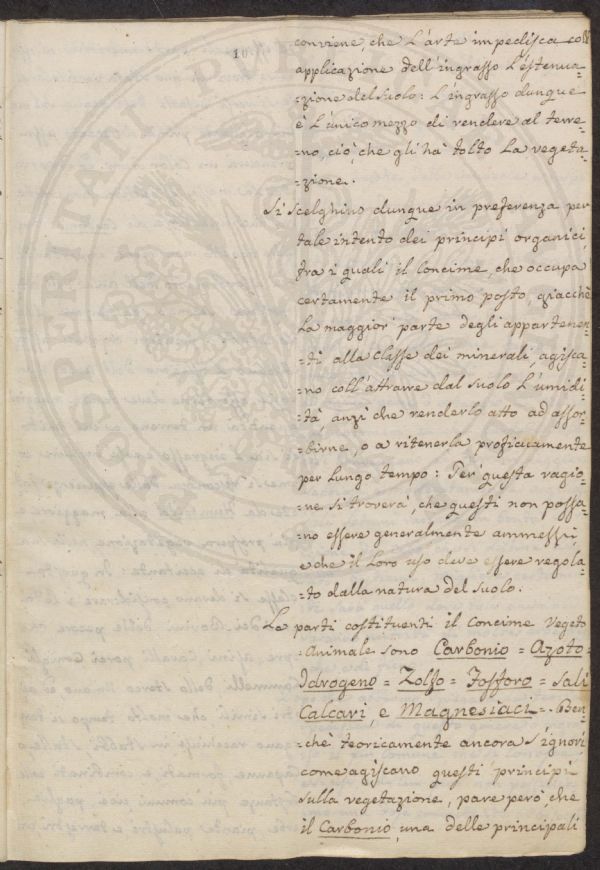 10.
conviene, che L'arte impedisca co
applicazione dell'ingrasso L'estenua=
=zione del suolo: L'ingrasso dunque
è L'unico mezzo di rendere al terre=
=no, ciò che gli hà tolto La vegeta=
=zione.
Si scelghino dunque in preferenza per
tale intento dei principi organici,
tra i quali il Concime, che occupa
certamente il primo posto, giacchè
La maggior parte degli appartenen=
=ti alla classe dei minerali, agisca=
=no coll'attrarre dal suolo L'umidi=
=tà, anzi che renderlo atto ad assor=
=birne, o a ritenerla proficuamente
per Lungo tempo: Per questa ragio=
=ne si troverà, che questi non possa=
=no essere generalmente ammessi,
e che il Loro uso deve essere regola=
=to dalla natura del suolo.
Le parti costituenti il Concime Vegeto
=Animale sono Carbonio = Azoto =
Idrogeno = Zolfo = Fosforo = Sali
Calcari, e Magnesiaci =. Ben=
=chè teoricamente ancora s'ignori
come agiscano questi principi
sulla vegetazione, pare però che
il Carbonio, una delle principali